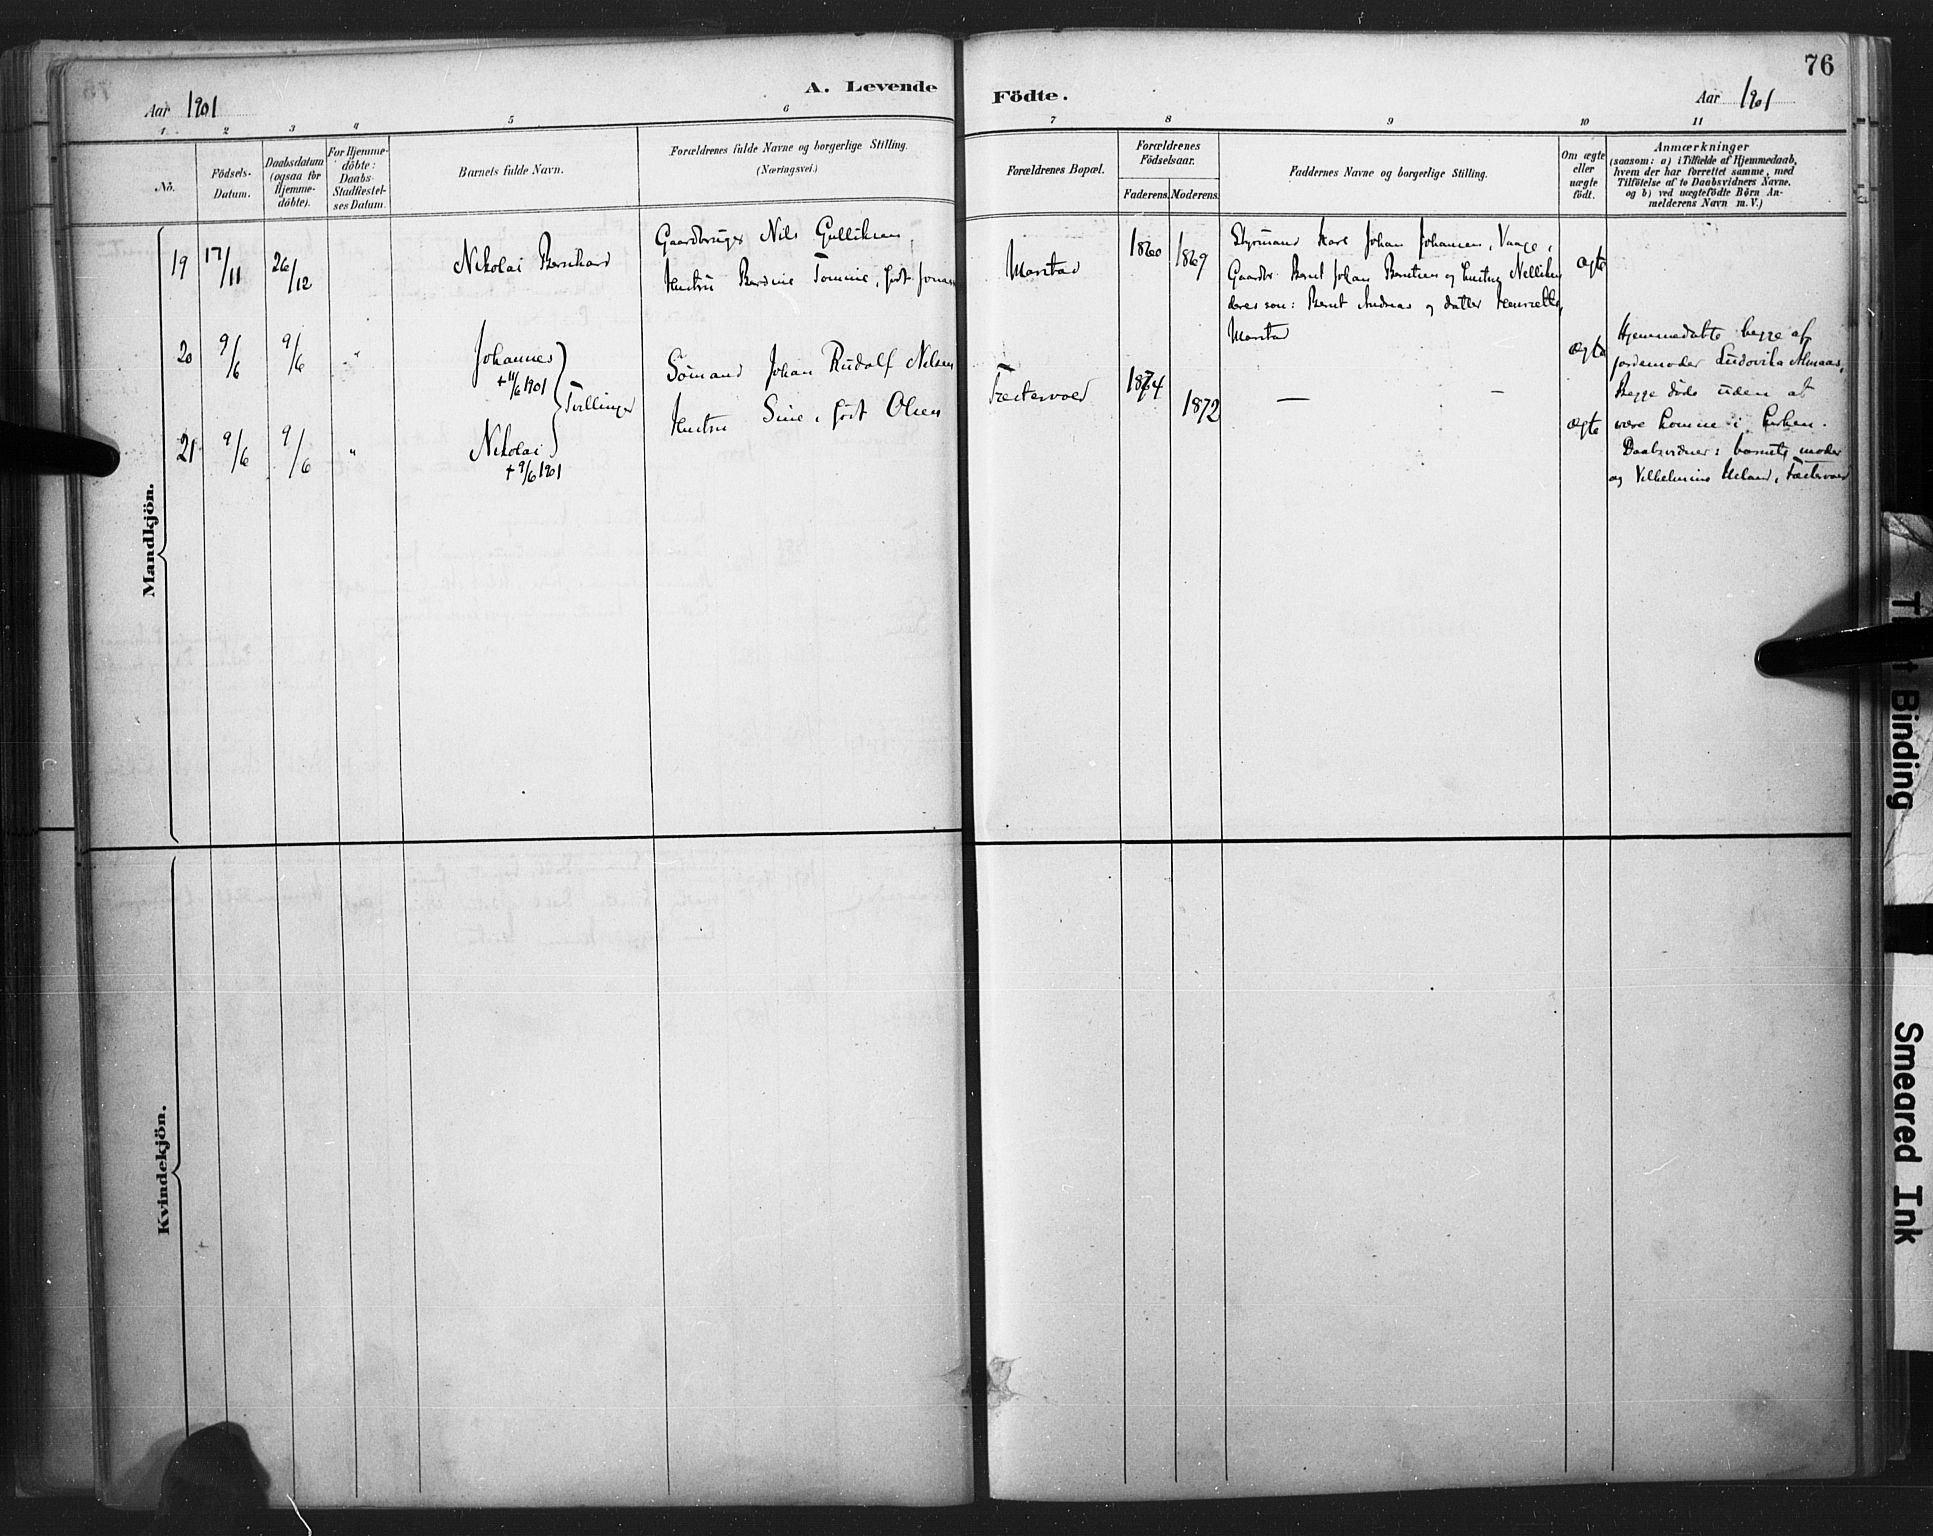 76
A. Levende Födte.
Aar 1901
Aar 1901
1. 2 3 4 5 6 7 8 9 10 11
No.
Födsels-
Datum.
Daabsdatum
(ogsaa for
Hjemme-
döbte).
For Hjemme-
döbte:
Daabs-
Stadfæstel-
ses Datum.
Barnets fulde Navn.
Forældrenes fulde Navne og borgerlige Stilling.
(Næringsvei.)
Forældrenes Bopæl.
Forældrenes
Födselsaar.
Faderens. Moderens.
Faddernes Navne og borgerlige Stilling.
Om ægte
eller
uægte
födt.
Anmærkninger
(saasom: a) i Tilfælde af Hjemmedaab,
hvem der har forrettet samme, med
Tilföielse af to Daabsvidners Navne,
og b) ved uægtefödte Börn An-
melderens Navn m. V.)
Mandkjön.
19 17/11 26/12
Nikolai Bernhard
Gaardbruger Nils Gulliksen,
Hustru Berdine Tomine, født Jonas
Marstad
1860 1869
Styrmand Karl Johan Johansen, Vaage,
Gaardbr. Bernt Johan Berntsen og hustru Nellike,
deres søn: Bernt Andreas og datter
Marstad
ægte
20 9/6 9/6 "
Johannes
+ 11/6 1901
Tvillinger
Sømand Johan Rudolf Nelsen
Hustru Sine, født Olsen
1874
1872
— —
ægte
Hjemmedøbte begge af
jordemoder Ludovika Almaas.
Begge døde uden at
være komne i kirken.
Daabsvidner: barnets moder
og Vilhelmine
21 9/6 9/6 "
Nikolai
+ 9/6 1901
ægte
Kvindekjön.
Binding
Smeared Ink